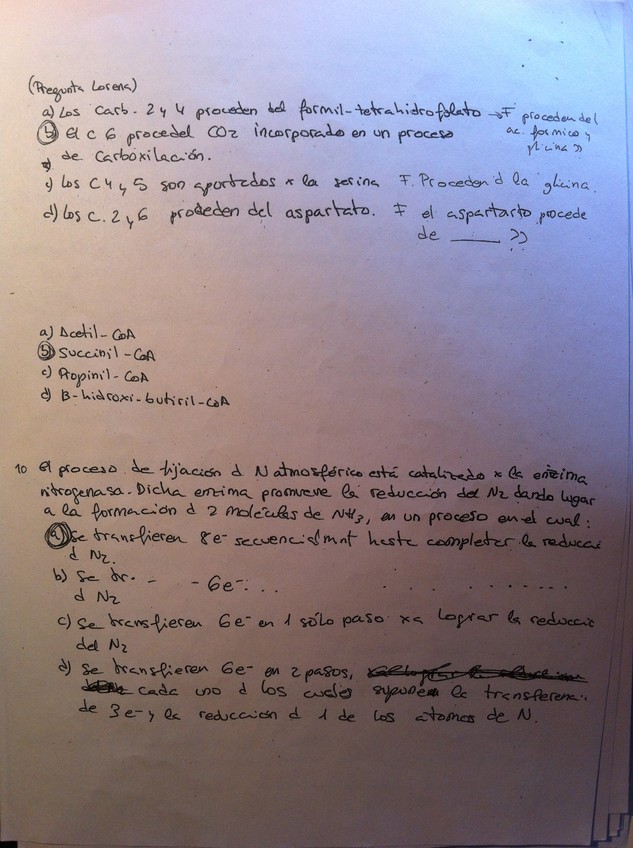 (Pregunta Lorena)
a) Los Carb. 2 y 4 proceden del formil-tetrahidrofolato → F proceden del
ac. formico y
glicina??
b) El C 6 procedel CO2 incorporado en un proceso
de Carboxilación.
c) Los C 4 y 5 son aportados x la serina F. Proceden d la glicina.
d) Los C. 2 y 6 proceden del aspartato. F el aspartarto procede
de ____ ??
a) Acetil-CoA
b) Succinil-CoA
c) Propinil-CoA
d) B-hidroxi-butiril-CoA
10 El proceso de fijación d N atmosférico está catalizado x la enzima
nitrogenasa. Dicha enzima promueve la reducción del N2 dando lugar
a la formación d 2 moléculas de NH3, en un proceso en el cual:
a) Se transfieren 8e- secuencialmnt hasta completar la reducci
d N2.
b) Se tr. - - 6e-...
d N2
c) Se transfieren 6e- en 1 sólo paso xa lograr la reducci
del N2
d) Se transfieren 6e- en 2 pasos,
cada uno d los cuales suponen la transferenci
de 3e- y la reducción d 1 de los átomos de N.